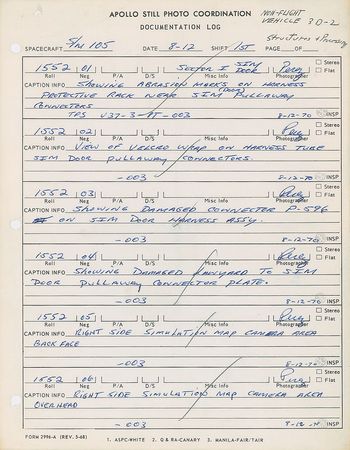 APOLLO STILL PHOTO COORDINATION
NON-FLIGHT
VEHICLE 3D-2
DOCUMENTATION LOG
Structures &
SPACECRAFT S/M 105 DATE 8-12 SHIFT 1ST PAGE OF
1552 01 SECTOR I SIM DOOR Perry Stereo
Roll Neg P/A D/S Misc Info Photographer Flat
CAPTION INFO SHOWING ABRASION MARKS ON HARNESS
PROTECTIVE RACK NEAR SIM (DOOR) PULLAWAY
CONNECTORS
TPS V37-3-003 8-12-70 INSP
1552 02 Perry Stereo
Roll Neg P/A D/S Misc Info Photographer Flat
CAPTION INFO VIEW OF VELCRO WRAP ON HARNESS TUBE
SIM DOOR PULLAWAY CONNECTORS.
-003 8-12-70 INSP
1552 03 Perry Stereo
Roll Neg P/A D/S Misc Info Photographer Flat
CAPTION INFO SHOWING DAMAGED CONNECTOR P-596
ON SIM DOOR HARNESS ASSY.
-003 8-12-70 INSP
1552 04 Perry Stereo
Roll Neg P/A D/S Misc Info Photographer Flat
CAPTION INFO SHOWING DAMAGED LANYARD TO SIM
DOOR PULLAWAY CONNECTOR PLATE.
-003 8-12-70 INSP
1552 05 Perry Stereo
Roll Neg P/A D/S Misc Info Photographer Flat
CAPTION INFO RIGHT SIDE SIMULATION MAP CAMERA AREA
BACK FACE
-003 8-12-70 INSP
1552 06 Perry Stereo
Roll Neg P/A D/S Misc Info Photographer Flat
CAPTION INFO RIGHT SIDE SIMULATION MAP CAMERA AREA
OVERHEAD
-003 8-12- INSP
FORM 2996-A (REV. 5-68) 1. ASPC/WHITE 2. Q & RA-CANARY 3. MANILA-FAIR/TAIR